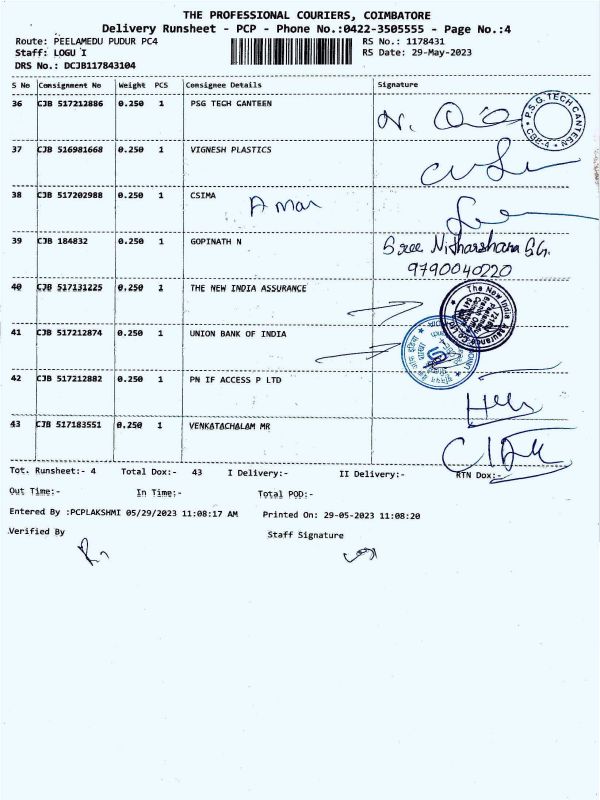 THE PROFESSIONAL COURIERS, COIMBATORE
Delivery Runsheet - PCP - Phone No.:0422-3505555 - Page No.:4
Route: PEELAMEDU PUDUR PC4 RS No.: 1178431
Staff: LOGU I RS Date: 29-May-2023
DRS No.: DCJB117843104
S No Consignment No Weight PCS Consignee Details Signature
36 CJB 517212886 0.250 1 PSG TECH CANTEEN
P.S.G. TECH CANTEEN CBE-4
37 CJB 516981668 0.250 1 VIGNESH PLASTICS
38 CJB 517202988 0.250 1 CSIMA Aman
39 CJB 184832 0.250 1 GOPINATH N Sree Nidharshana SG.
9790040220
40 CJB 517131225 0.250 1 THE NEW INDIA ASSURANCE
The New India Assurance Co. Ltd
41 CJB 517212874 0.250 1 UNION BANK OF INDIA
42 CJB 517212882 0.250 1 PN IF ACCESS P LTD
43 CJB 517183551 0.250 1 VENKATACHALAM MR
Tot. Runsheet:- 4 Total Dox:- 43 I Delivery:- II Delivery:- RTN Dox:-
Out Time:- In Time:- Total POD:-
Entered By :PCPLAKSHMI 05/29/2023 11:08:17 AM Printed On: 29-05-2023 11:08:20
Verified By Staff Signature